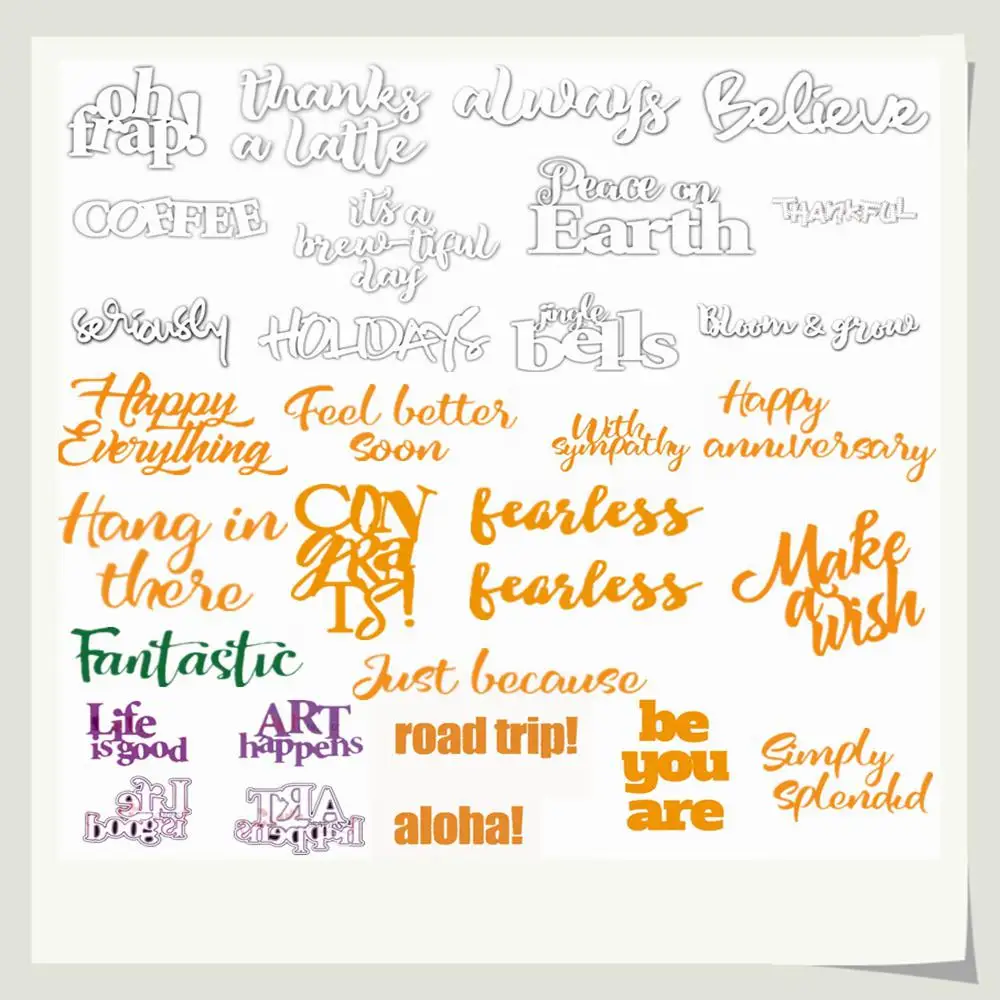 oh
frap!
thanks
a latte
always
Believe
COFFEE
it's a
brew-tiful
day
Peace on
Earth
THANKFUL
seriously
HOLIDAYS
jingle
bells
Bloom & grow
Happy
Everything
Feel better
soon
With
sympathy
Happy
anniversary
Hang in
there
CON
GRA
TS!
fearless
fearless
Make
a wish
Fantastic
Just because
Life
is good
ART
happens
road trip!
be
you
are
Simply
Splendid
Life
is good
ART
happens
aloha!